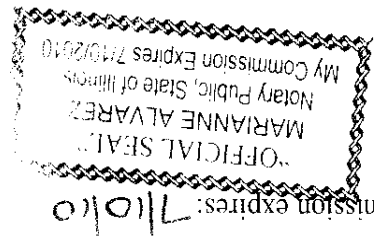 mission expires: 7/10/10
"OFFICIAL SEAL"
MARIANNE ALVAREZ
Notary Public, State of Illinois
My Commission Expires 7/10/2010